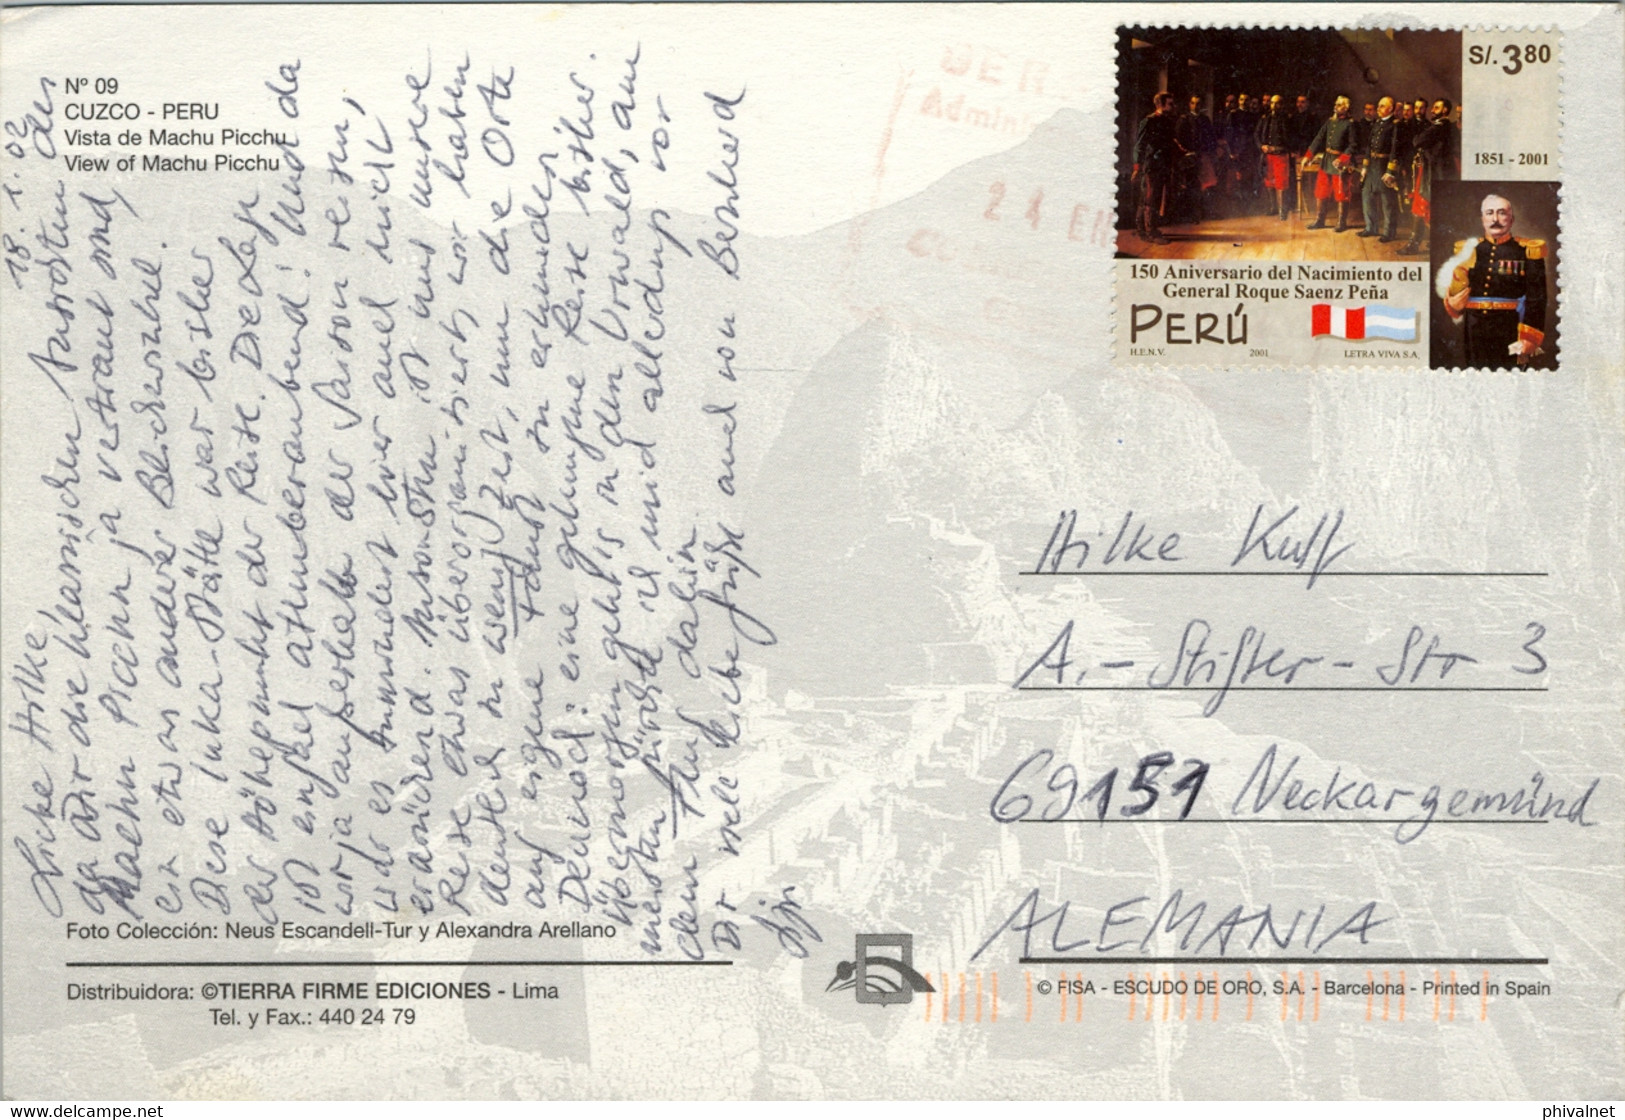 Nº 09
CUZCO - PERU
Vista de Machu Picchu
View of Machu Picchu
18. 1. 02
Liebe Hilke
da Dir die klassischen Ansichten des
Machu Picchu ja vertraut sind,
ein etwas anderer Blickwinkel.
Diese Inka-Stätte war bisher
der Höhepunkt der Reise. Die Lage
ist einfach atemberaubend! Und da
wir ja außerhalb der Saison reisen,
war es zumindest hier auch nicht
erdrückend. Ansonsten ist uns unsere
Reise etwas überorganisiert, wir haben
deutlich zu wenig Zeit, um die Orte
auf eigene Faust zu erkunden.
Dennoch: eine gelungene Reise bisher.
Übermorgen geht's in den Urwald, am
meisten fürchte ich mich allerdings vor
dem Flug dahin.
Dir viele liebe Grüße auch von Bernhard
S/. 3.80
1851 - 2001
150 Aniversario del Nacimiento del
General Roque Saenz Peña
PERÚ
H.E.N.V. 2001 LETRA VIVA S.A.
24 EN
Hilke
A.-Stifter-Str 3
69151 Neckargemünd
ALEMANIA
Foto Colección: Neus Escandell-Tur y Alexandra Arellano
Distribuidora: ©TIERRA FIRME EDICIONES - Lima
Tel. y Fax.: 440 24 79
© FISA - ESCUDO DE ORO, S.A. - Barcelona - Printed in Spain
phivalnet